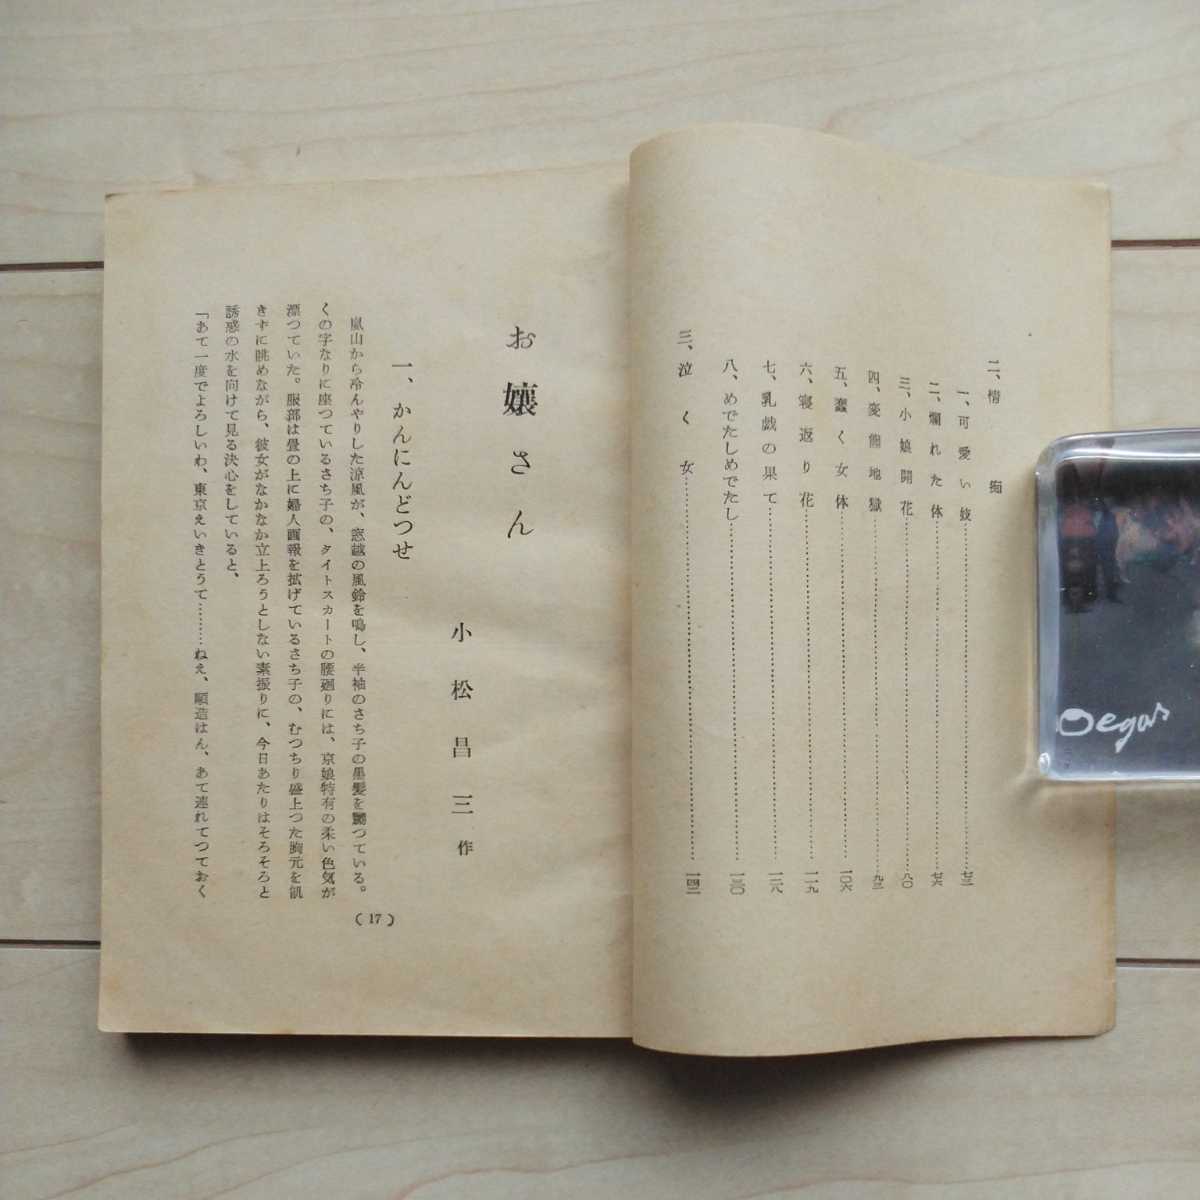 二、情痴
一、可愛い妓……………七三
二、爛れた体……………七六
三、小娘開花……………八〇
四、変態地獄……………九三
五、蠢く女体……………一〇六
六、寝返り花……………一一九
七、乳戯の果て……………一二八
八、めでたしめでたし……………一三〇
三、泣く女……………一四二
お嬢さん
小松昌三作
一、かんにんどつせ
嵐山から冷んやりした涼風が、窓越の風鈴を鳴し、半袖のさち子の黒髪を嬲つている。
くの字なりに座つているさち子の、タイトスカートの腰廻りには、京娘特有の柔い色気が
漂つていた。服部は畳の上に婦人画報を拡げているさち子の、むつちり盛上つた胸元を飢
きずに眺めながら、彼女がなかなか立上ろうとしない素振りに、今日あたりはそろそろと
誘惑の水を向けて見る決心をしていると、
「あて一度でよろしいわ、東京えいきとうて………ねえ、順造はん、あて連れてつておく
(17)
Degas